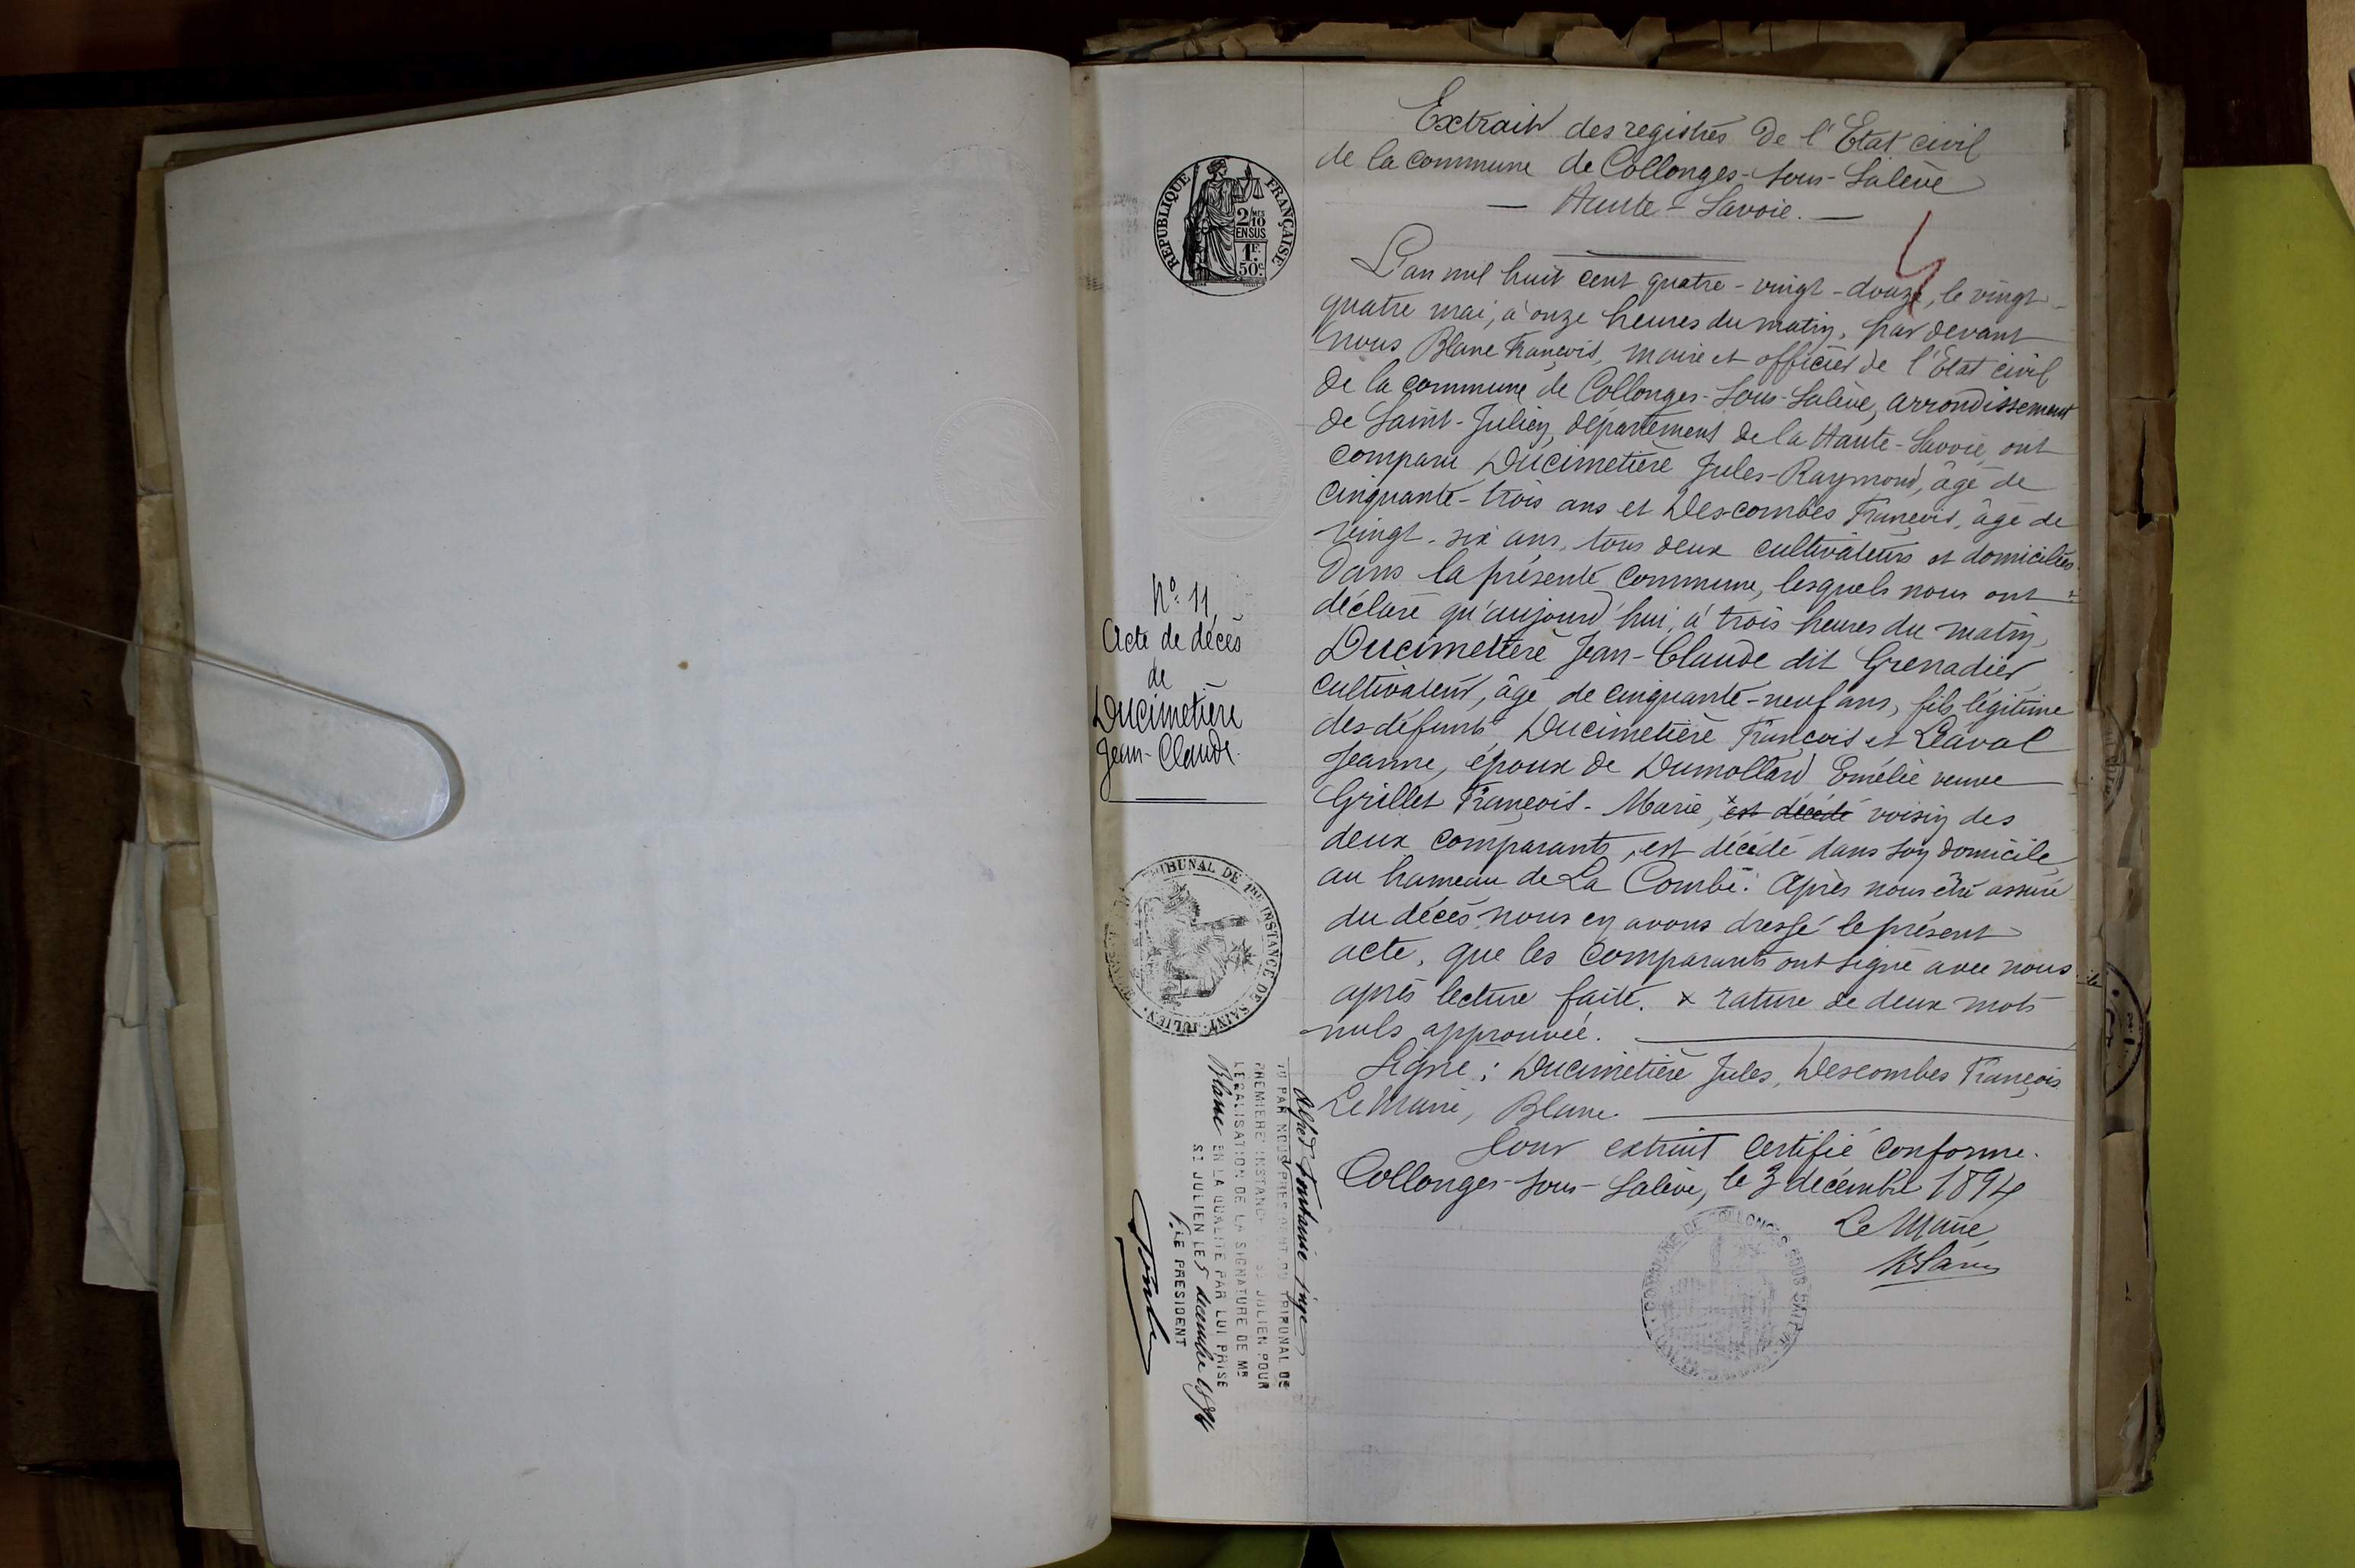 Extrait des registres de l'Etat civil
de la commune de Collonges-sous-Salève
— Haute-Savoie. —
RÉPUBLIQUE FRANÇAISE
2/10MES
EN SUS
1F.
50C.
L'an mil huit cent quatre-vingt-douze, le vingt-
quatre mai, à onze heures du matin, par devant
nous Blanc François, maire et officier de l'Etat civil
de la commune de Collonges-Sous-Salève, arrondissement
de Saint-Julien, département de la Haute-Savoie, ont
comparu Ducimetière Jules-Raymond, âgé de
cinquante-trois ans et Descombes François, âgé de
vingt-six ans, tous deux cultivateurs et domiciliés
dans la présente commune, lesquels nous ont
déclaré qu'aujourd'hui, à trois heures du matin,
Ducimetière Jean-Claude dit Grenadier
cultivateur, âgé de cinquante-neuf ans, fils légitime
des défunts Ducimetière François et Laval
Jeanne, époux de Dumollard Emélie veuve
Grillet François-Marie, x est décédé voisin des
deux comparants, est décédé dans son domicile
au hameau de La Combe. Après nous être assuré
du décès, nous en avons dressé le présent
acte, que les comparants ont signé avec nous
après lecture faite. x rature de deux mots
nuls approuvée.
Signé : Ducimetière Jules, Descombes François
Le Maire, Blanc.
Pour extrait certifié conforme.
Collonges-sous-Salève, le 3 décembre 1894
Le Maire,
Blanc
COLLONGES SOUS SALÈVE
No. 11
Acte de décès
de
Ducimetière
Jean-Claude.
TRIBUNAL DE 1RE INSTANCE DE SAINT-JULIEN
Alfred juge
VU PAR NOUS PRESIDENT DU TRIBUNAL DE
PREMIERE INSTANCE DE ST JULIEN POUR
LEGALISATION DE LA SIGNATURE DE MR
Blanc EN LA QUALITE PAR LUI PRISE
ST JULIEN LE 5 décembre 1894
P. LE PRESIDENT